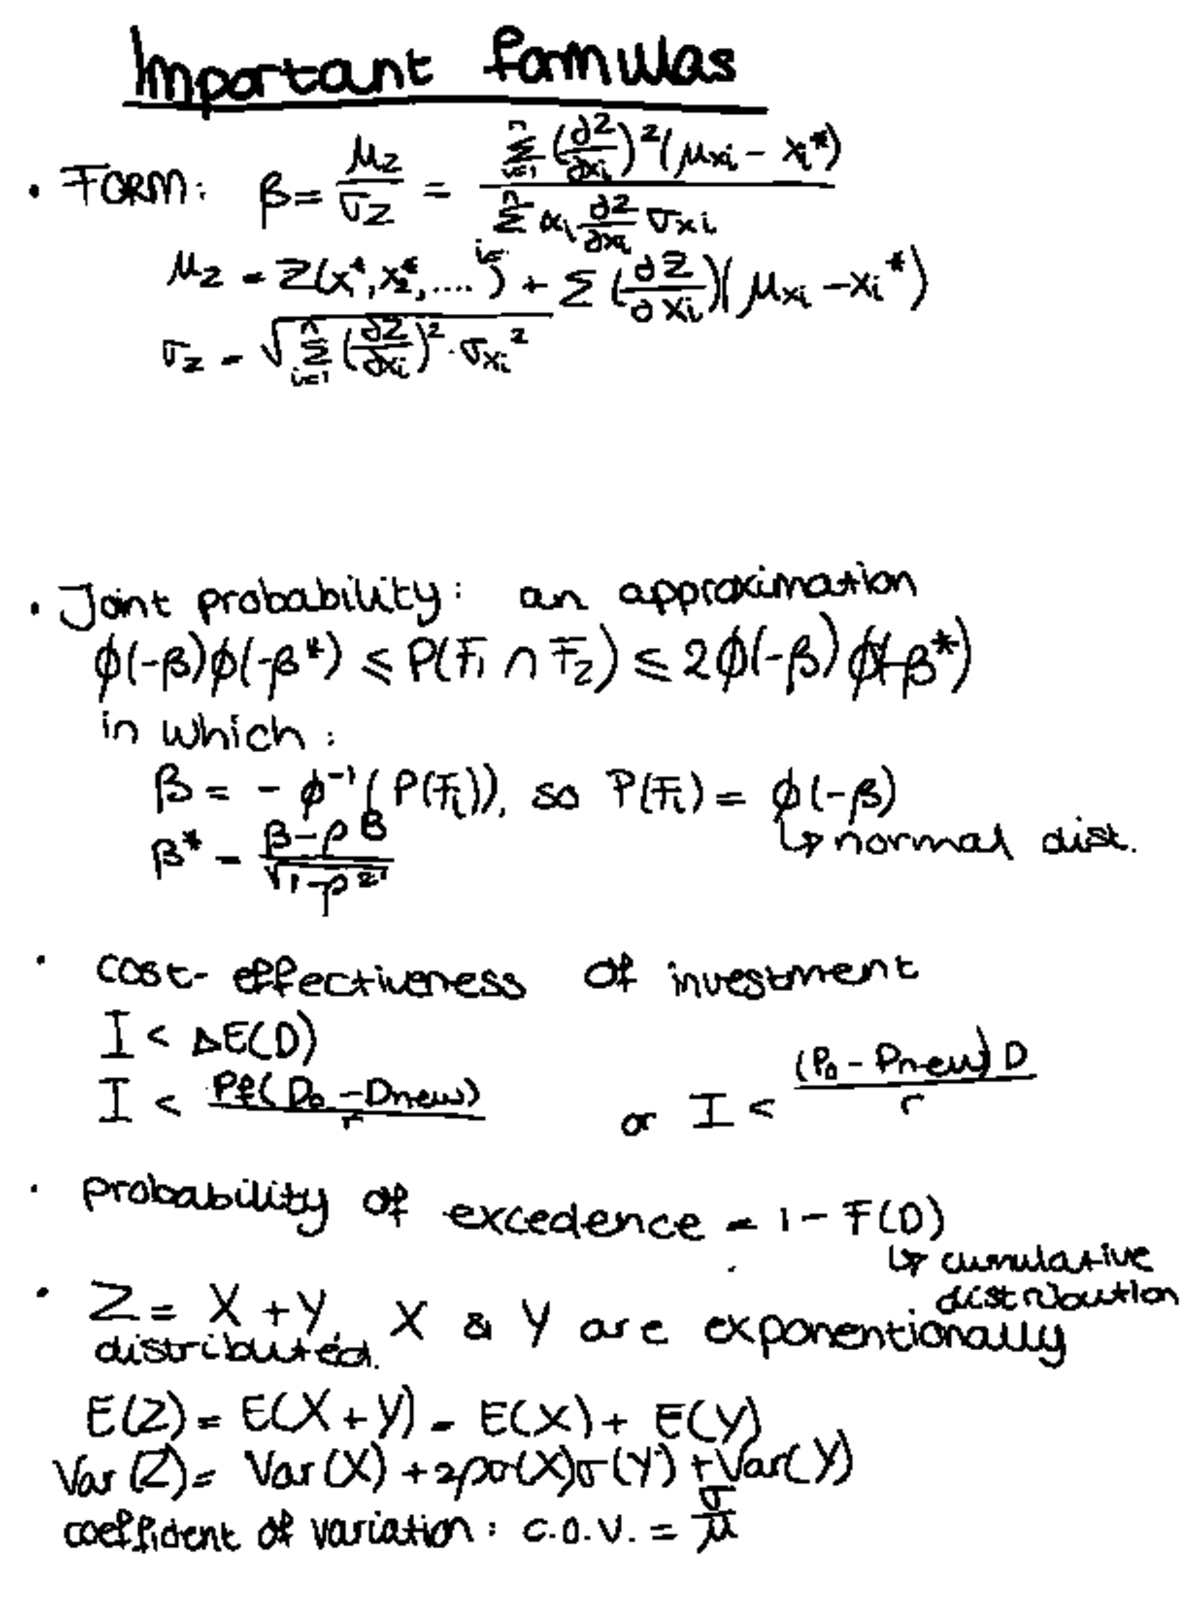 Important formulas
• FORM: β = μz/σz = Σⁿᵢ₌₁ (∂Z/∂xᵢ)² (μxᵢ − xᵢ*) / Σⁿᵢ₌₁ αᵢ ∂Z/∂xᵢ σxᵢ
μz = Z(x₁*, x₂*, ....) + Σ (∂Z/∂xᵢ)(μxᵢ − xᵢ*)
σz = √Σⁿᵢ₌₁ (∂Z/∂xᵢ)² · σxᵢ²
• Joint probability: an approximation
ϕ(-β)ϕ(-β*) ≤ P(F₁ ∩ F₂) ≤ 2ϕ(-β)ϕ(-β*)
in which:
β = - ϕ⁻¹(P(Fᵢ)), so P(Fᵢ) = ϕ(-β)
β* = (β - ρβ)/√(1-ρ²) ↳ normal dist.
• cost-effectiveness of investment
I < ΔE(D)
I < Pf(D₀ - Dnew)/r or I < (P₀ - Pnew)D/r
• probability of excedence = 1 - F(D)
↳ cumulative
distribution
• Z = X + Y, X & Y are exponentionally
distributed.
E(Z) = E(X + Y) = E(X) + E(Y)
Var(Z) = Var(X) + 2ρσ(X)σ(Y) + Var(Y)
coefficient of variation: c.o.v. = σ/μ